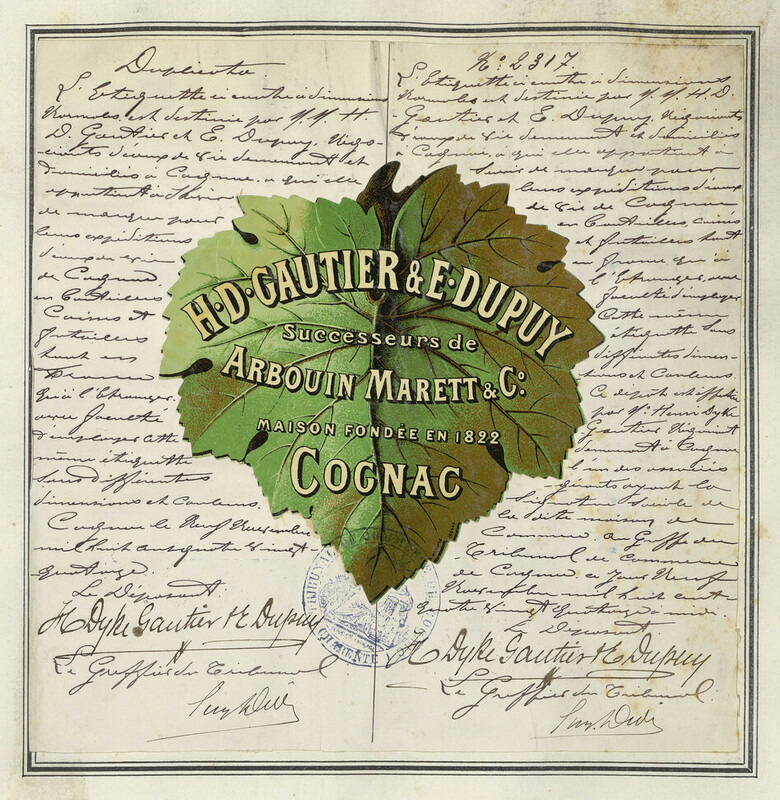 Duplicata.
L'Etiquette ci contre à dimensions
normales est destinée par M.M. H.
D. Gautier et E. Dupuy, Négo-
ciants d'eaux de vie demeurant et
domiciliés à Cognac, à qui elle
appartient à Servir
de marque pour
leurs expéditions
d'eaux de vie
de Cognac
en Bouteilles
Caisses et
futailles
tant en
France
qu'à l'Etranger
avec faculté
d'employer cette
même étiquette
sous différentes
dimensions et couleurs
Cognac le Neuf Novembre
mil huit cent quatre vingt-
quatorze.
Le Déposant.
H Dyke Gautier & E Dupuy
Le Greffier du Tribunal
No: 2317.
L'Etiquette ci contre à dimensions
normales est destinée par M.M. H.D.
Gautier et E. Dupuy, Négociants
d'eaux de vie demeurant et domiciliés
à Cognac, à qui elle appartient à
Servir de marque pour
leurs expéditions d'eaux
de vie de Cognac
en Bouteilles Caisses
et futailles tant
France qu'à
l'Etranger, avec
faculté d'employer
Cette même
étiquette sous
différentes dimen-
sions et Couleurs
Ce dépôt est effectué
par Mr. Henri Dyke
Gautier Négociant
demeurant à Cognac
l'un des associés
ayant la
Signature Sociale de
la dite maison de
Commerce au Greffe du
Tribunal de Commerce
de Cognac ce jour Neuf
Novembre mil huit cent
quatre vingt quatorze à midi.
Le Déposant
H Dyke Gautier & E Dupuy
Le Greffier du Tribunal.
H·D·GAUTIER & E·DUPUY
Successeurs de
ARBOUIN MARETT & Co.
MAISON FONDÉE EN 1822
COGNAC
TRIBUNAL DE COMMERCE DE COGNAC
CHARENTE